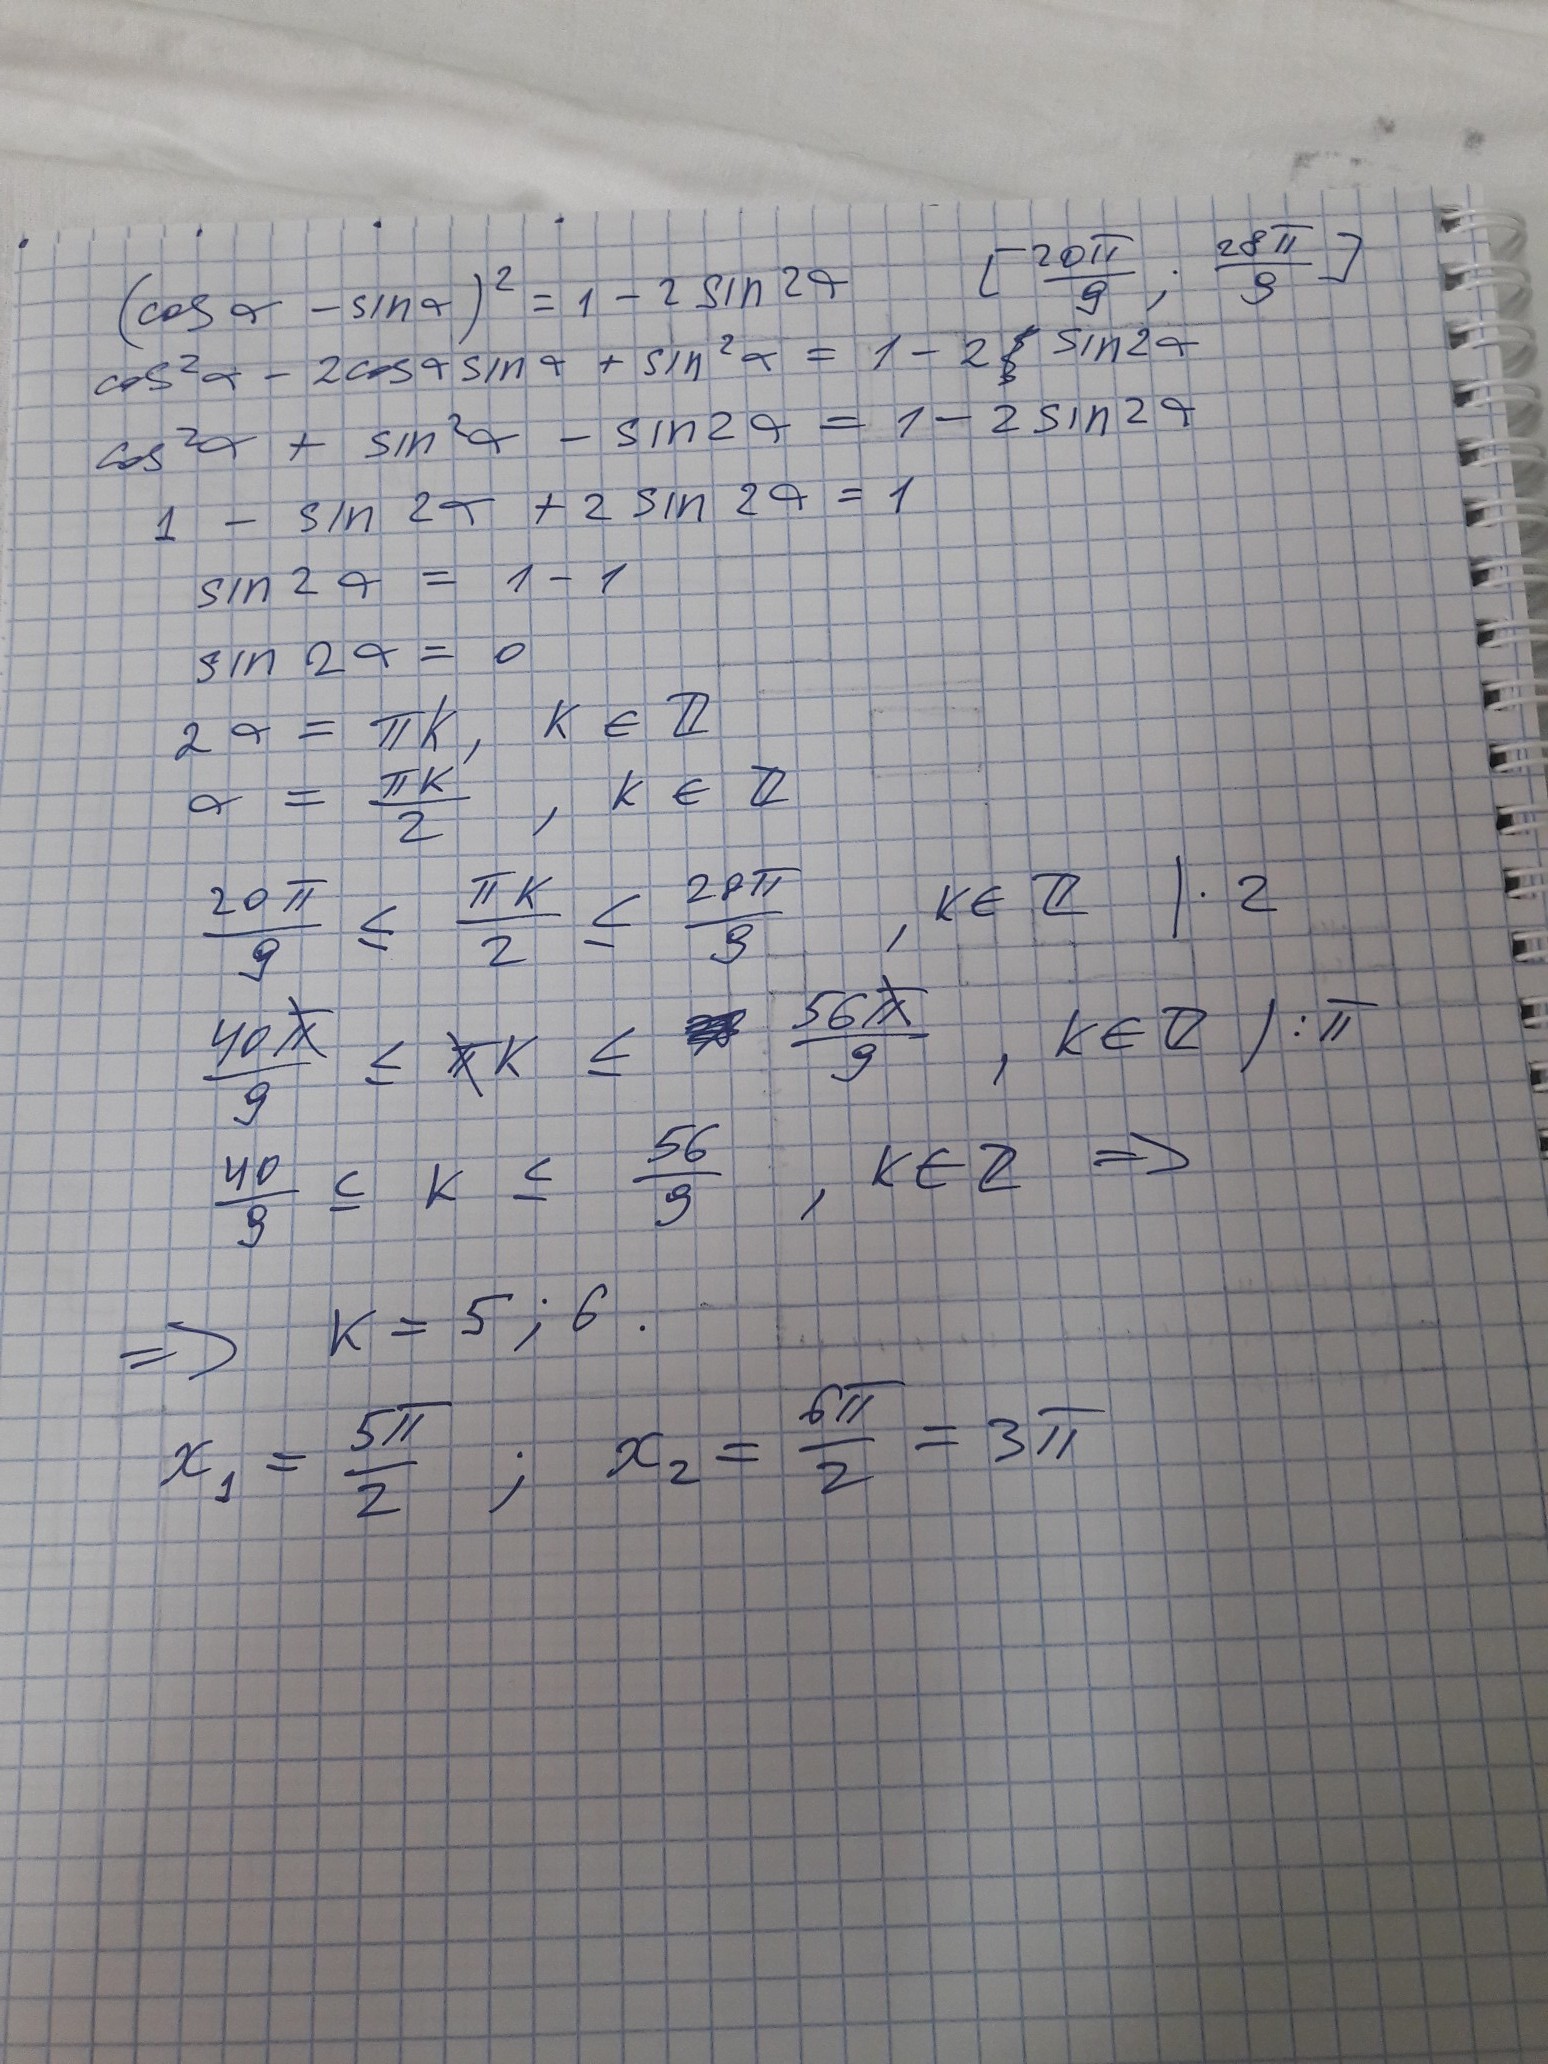 (cos α - sin α)² = 1 - 2 sin 2α [20π/9 ; 28π/9]
cos²α - 2cos α sin α + sin²α = 1 - 2 sin 2α
cos²α + sin²α - sin 2α = 1 - 2 sin 2α
1 - sin 2α + 2 sin 2α = 1
sin 2α = 1 - 1
sin 2α = 0
2α = πk, k ∈ ℤ
α = πk/2, k ∈ ℤ
20π/9 ≤ πk/2 ≤ 28π/9, k ∈ ℤ | · 2
40π/9 ≤ πk ≤ 56π/9, k ∈ ℤ | : π
40/9 ≤ k ≤ 56/9, k ∈ ℤ =>
=> k = 5; 6.
x₁ = 5π/2 ; x₂ = 6π/2 = 3π